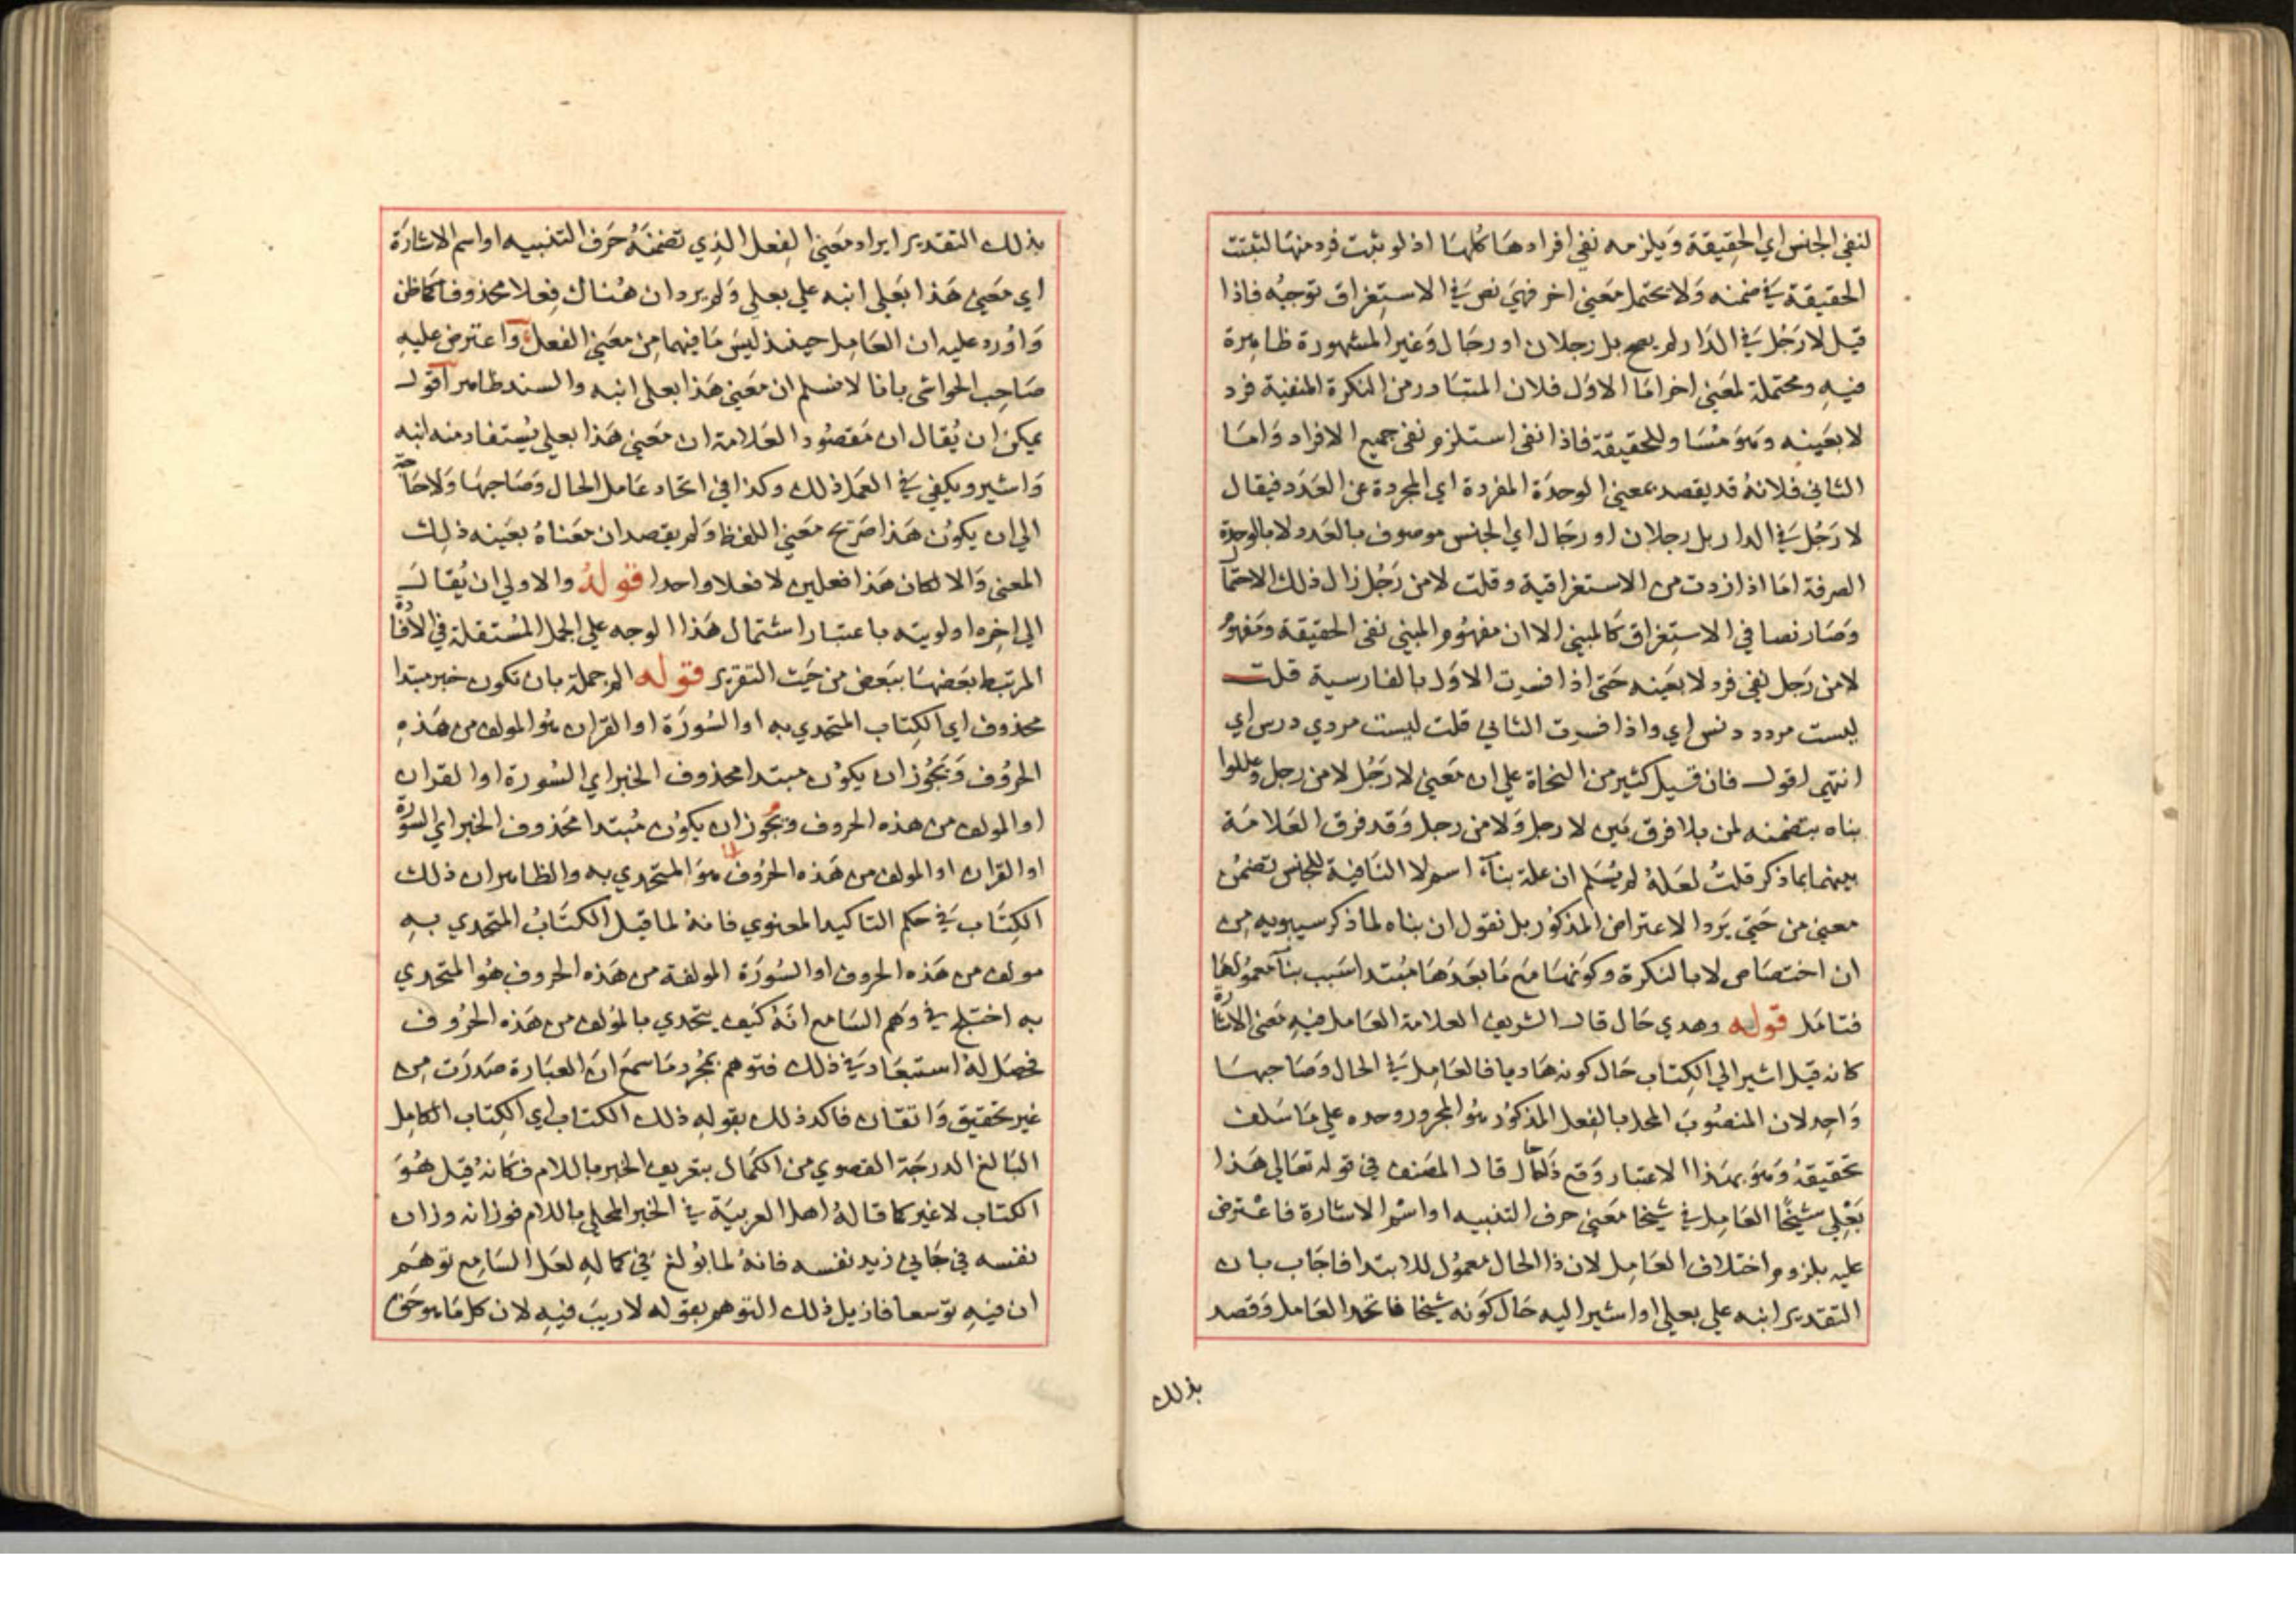 لنفي الجنس اي الحقيقة ويلزمه نفي افرادها كلها اذ لو ثبت فرد منها لثبتت
الحقيقة في ضمنه ولا يحتمل معني اخر فهي نص في الاستغراق توجبه فاذا
قيل لا رجل في الدار لم يصح بل رجلان او رجال وغير المشهورة ظاهرة
فيه ومحتملة لمعني اخر اما الاول فلان المتبادر من النكرة المنفية فرد
لا بعينه وهو مساو للحقيقة فاذا نفي استلزم نفي جميع الافراد واما
الثاني فلانه قد يقصد بمعني الوحدة المفردة اي المجردة عن العدد فيقال
لا رجل في الدار بل رجلان او رجال اي الجنس موصوف بالعدد ولا بالوحدة
الصرفة اما اذا زدت من الاستغراقية وقلت لا من رجل زال ذلك الاحتمال
وصار نصا في الاستغراق كالمبني الا ان مفهوم المبني نفي الحقيقة ومفهوم
لا من رجل نفي فرد لا بعينه حتي اذا فسرت الاول بالفارسية قلت
ليست مردد دنس اي واذا فسرت الثاني قلت ليست مردي درس اي
انتهي اقول فان قيل كثير من النحاة علي ان معني لا رجل لا من رجل وعللوا
بناه بتضمنه لمن بلا فرق بين لا رجل ولا من رجل وقد فرق العلامة
بينهما بما ذكر قلت لعله لم يسلم ان علة بناء اسم لا النافية للجنس تضمن
معني من حتي يرد الاعتراض المذكور بل نقول ان بناه لما ذكر سيبويه من
ان اختصاص لا بالنكرة وكونها مع ما بعدها مبتدا سبب بناء معمولها
فتامل قوله وهدي حال قال الشريف العلامة العامل فيه معني الاشارة
كانه قيل اشير الي الكتاب حال كونه هاديا فالعامل في الحال وصاحبها
واحد لان المنصوب المحل بالفعل المذكور هو المجرور وحده علي ما سلف
تحقيقه وهو بهذا الاعتبار وقع ذا حال قال المصنف في قوله تعالي هذا
بعلي شيخا العامل في شيخا معني حرف التنبيه او اسم الاشارة فاعترض
عليه بلزوم اختلاف العامل لان ذا الحال معمول للابتدا فاجاب بان
التقدير انبه علي بعلي او اشير اليه حال كونه شيخا فاتحد العامل وقصد
بذلك
بذلك التقدير ايراد معني الفعل الذي تضمنه حرف التنبيه او اسم الاشارة
اي معني هذا بعلي انبه علي بعلي ولم يرد ان هناك فعلا محذوفا كما ظن
واورد عليه ان العامل حينئذ ليس ما فيهما من معني الفعل واعترض عليه
صاحب الحواشي بانا لا نسلم ان معني هذا بعلي انبه والسند ظاهر اقول
يمكن ان يقال ان مقصود العلامة ان معني هذا بعلي يستفاد منه انبه
واشير ويكفي في العمل ذلك وكذا في اتحاد عامل الحال وصاحبها ولا حاجة
الي ان يكون هذا صريح معني اللفظ ولم يقصد ان معناه بعينه ذلك
المعني والا لكان هذا فعلين لا فعلا واحدا قوله والاولي ان يقال
الي اخره اولويته باعتبار اشتمال هذا الوجه علي الجمل المستقلة في الافادة
المرتبط بعضها ببعض من حيث التقرير قوله الم جملة بان تكون خبر مبتدا
محذوف اي الكتاب المتحدي به او السورة او القران هو المولف من هذه
الحروف ويجوز ان يكون مبتدا محذوف الخبر اي السورة او القران
او المولف من هذه الحروف ويجوز ان يكون مبتدا محذوف الخبر اي السورة
او القران او المولف من هذه الحروف هو المتحدي به والظاهر ان ذلك
الكتاب في حكم التاكيد المعنوي فانه لما قيل الكتاب المتحدي به
مولف من هذه الحروف او السورة المولفة من هذه الحروف هو المتحدي
به اختلج في وهم السامع انه كيف يتحدي بالمؤلف من هذه الحروف
فحصل له استبعاد في ذلك فتوهم بمجرد ما سمع ان العبارة صدرت من
غير تحقيق واتقان فاكد ذلك بقوله ذلك الكتاب اي الكتاب الكامل
البالغ الدرجة القصوي من الكمال بتعريف الخبر باللام فكانه قيل هو
الكتاب لا غير كما قاله اهل العربية في الخبر المحلي باللام فوزانه وزان
نفسه في جاني زيد نفسه فانه لما بولغ في كماله لعل السامع توهم
ان فيه توسعا فازيل ذلك التوهم بقوله لا ريب فيه لان كل ما هو حق